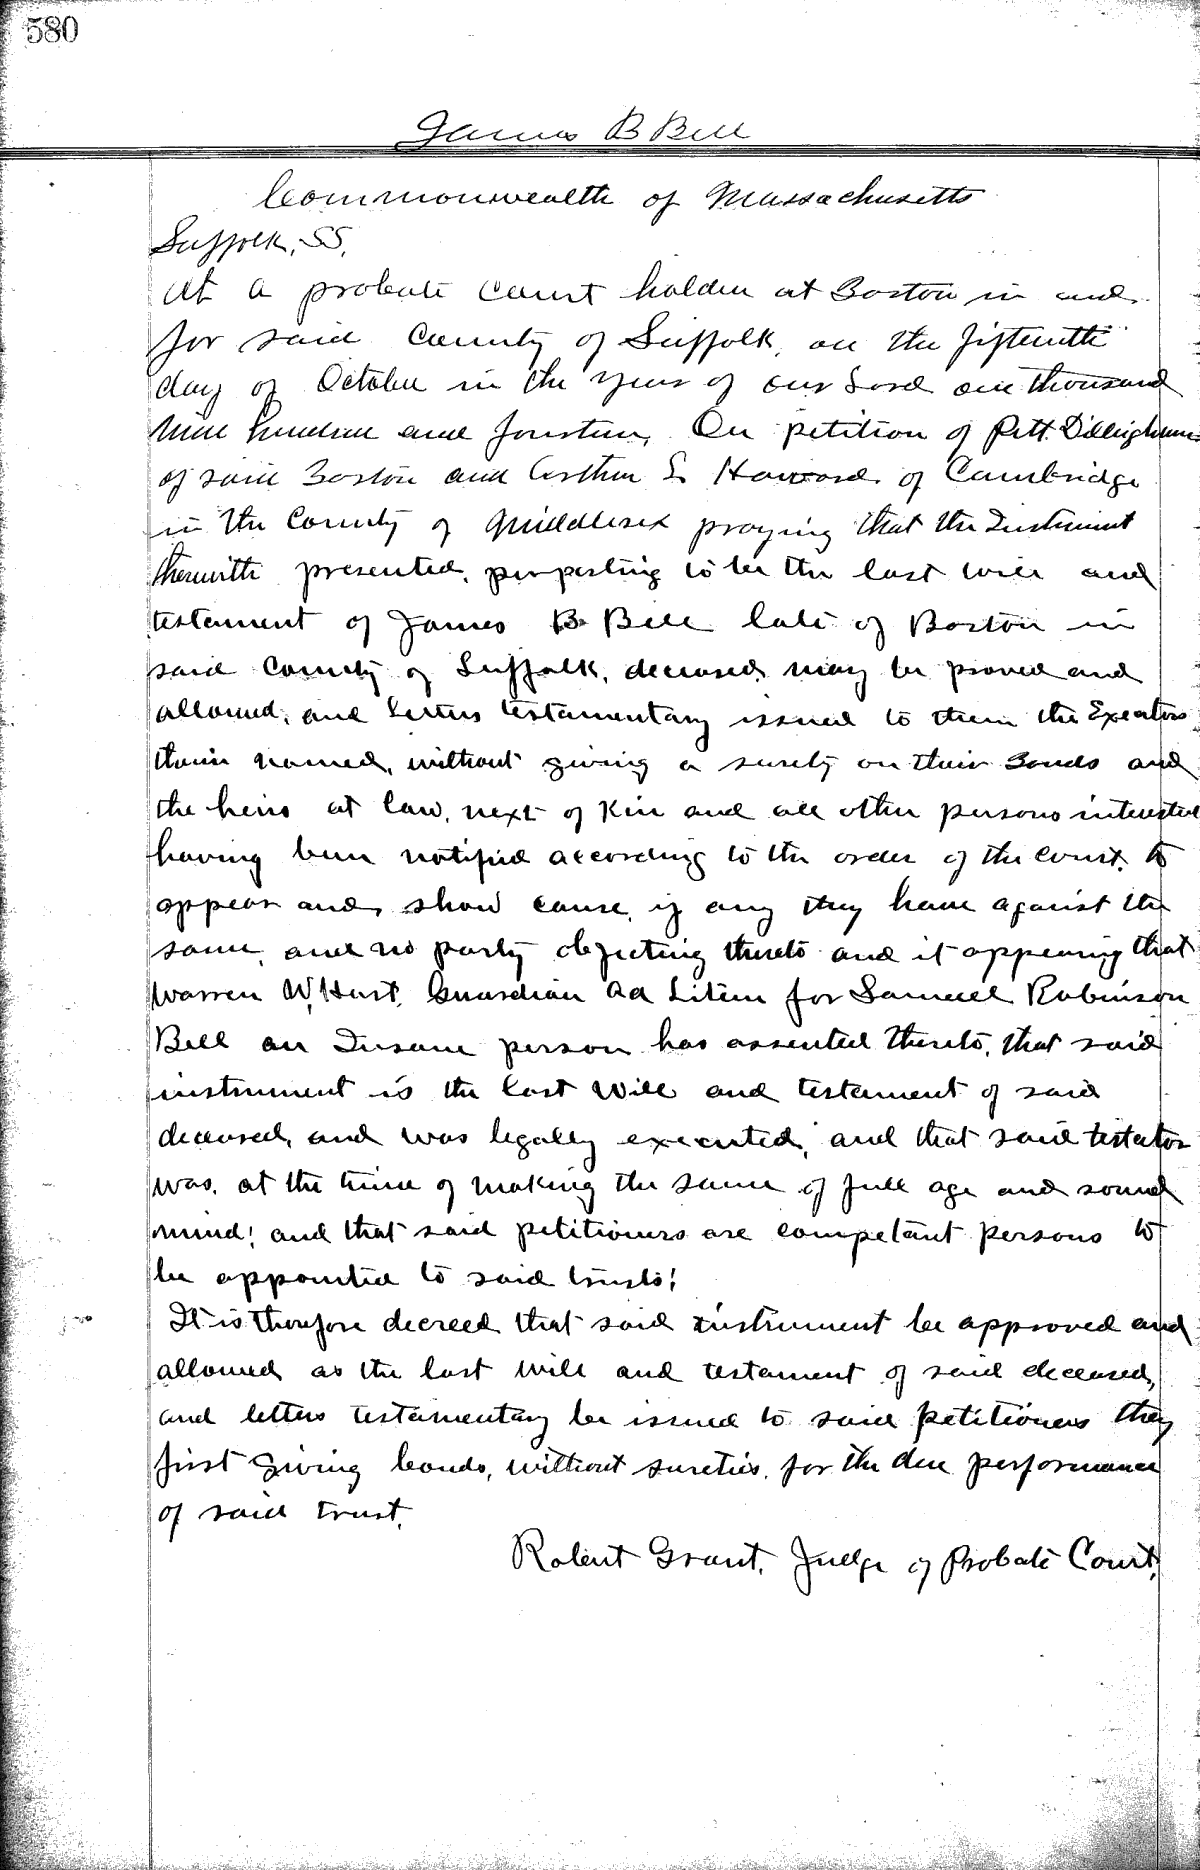 580
James B Bell
Commonwealth of Massachusetts
Suffolk, SS.
At a probate court holden at Boston in and
for said County of Suffolk, on the fifteenth
day of October in the year of our Lord one thousand
nine hundred and fourteen, On petition of Pitt Dillingham
of said Boston and Arthur L Howard of Cambridge
in the County of Middlesex praying that the Instrument
therewith presented, purporting to be the last will and
testament of James B Bell late of Boston in
said County of Suffolk, deceased, may be proved and
allowed, and letters testamentary issued to them the Executors
therin named, without giving a surety on their bonds and
the heirs at law, next of Kin and all other persons interested
having been notified according to the order of the court, to
appear and, show cause, if any they have against the
same, and no party objecting thereto and it appearing that
Warren W. Hurt, Guardian ad Litem for Samuel Robinson
Bell an Insane person has assented thereto, that said
instrument is the last Will and testament of said
deceased, and was legally executed, and that said testator
was, at the time of making the same of full age and sound
mind; and that said petitioners are competant persons to
be appointed to said trusts;
It is therefore decreed that said instrument be approved and
allowed as the last will and testament of said deceased,
and letters testamentary be issued to said petitioners they
first giving bonds, without sureties, for the due performance
of said trust.
Robert Grant, Judge of Probate Court.